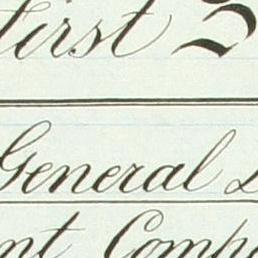 first
General
nt Comp